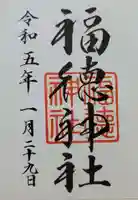 福徳神社
令和五年 一月二十九日